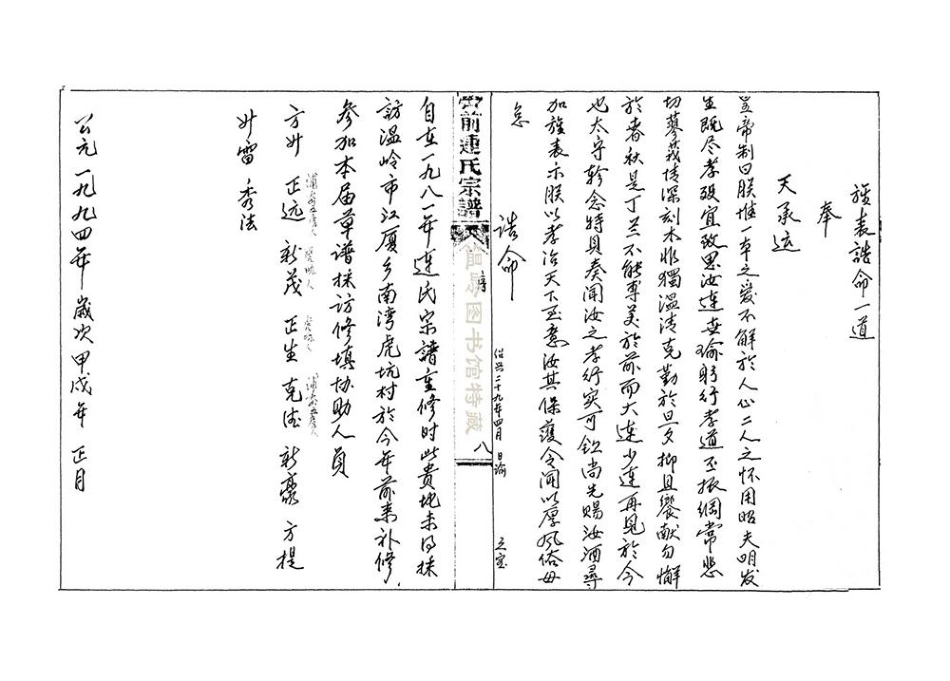 旌表誥命一道
奉
天承运
皇帝制曰朕惟一本之爱不解於人心二人之怀用昭夫明发
生既尽孝殁宜致思汝連世瑜躬行孝道丕振綱常悲
切蓼莪情深刻木非獨温清克勤於旦夕抑且饗献勿懈
於春秋是丁兰不能專美於前而大連少連再見於今
也太守軫念特具奏闻汝之孝行实可钦尚先赐汝酒尋
加旌表示朕以孝治天下至意汝其保護令闻以厚风俗毋
怠
誥命
绍兴二十九年四月 日諭
之宝
前連氏宗譜
序
八
图书馆特藏
自在一九八一年連氏宗譜重修时此贵地未得採
访温岭市江厦乡南湾虎坑村於今年前来补修
参加本届草谱採访修填协助人員
方妙 正远 新茂 正生 克法 新豪 方提
妙雷 秀法
公元一九九四年歲次甲戌年 正月